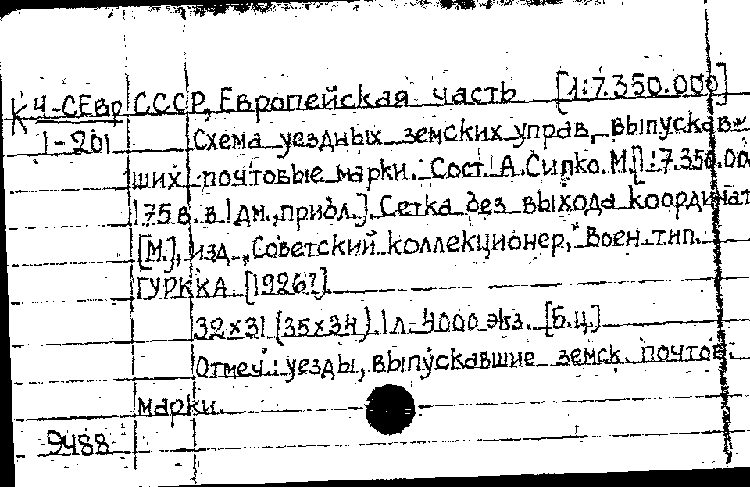 К Ч-СЕвр СССР, Европейская часть [1:7.350.000]
1-201 Схема уездных земских управ, выпускав-
ших почтовые марки. Сост. А. Сипко. М. [1:7.350.00
175 в. в 1 дм., прибл.]. Сетка без выхода координат
[М.], изд. „Советский коллекционер," Воен. тип.
ГУРККА [1926?].
32х31 (35х34). 1 л. 4000 экз. [Б.ц.]
Отмеч.: уезды, выпускавшие земск. почтов.
марки.
9488